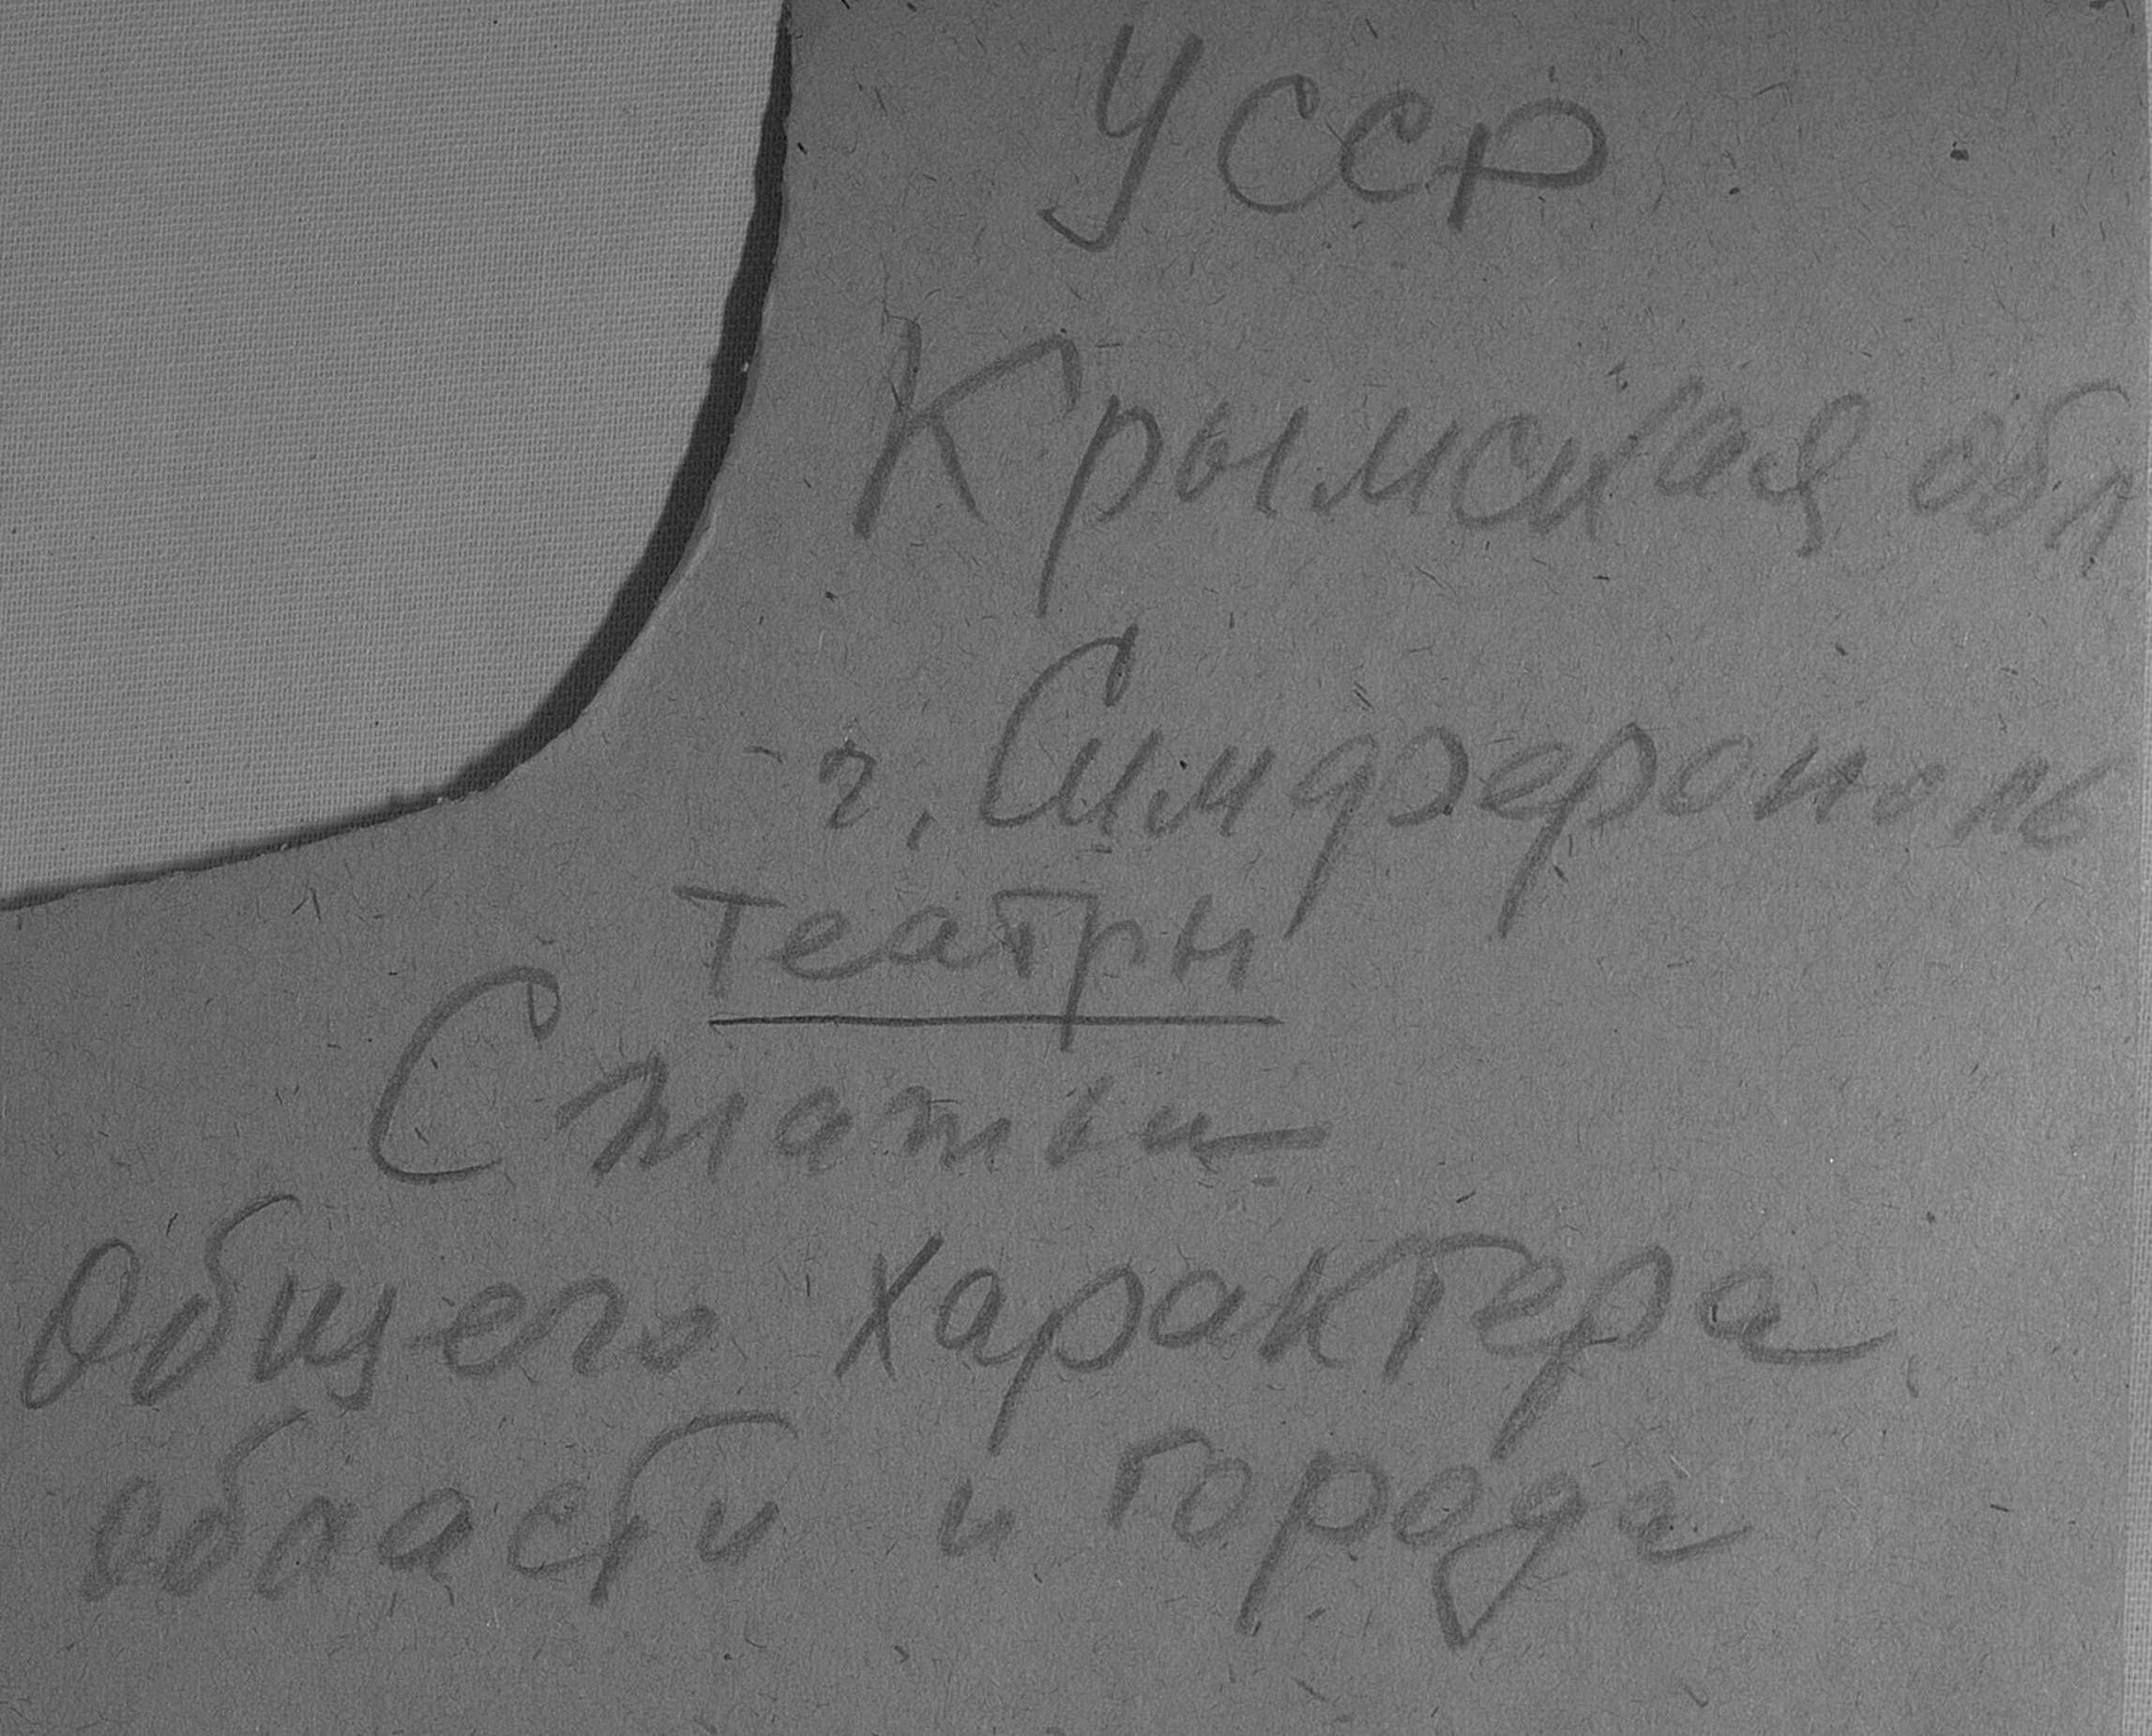 УССР
Крымская обл
г. Симферополь
Театры
Статьи
Общего характера
области и города